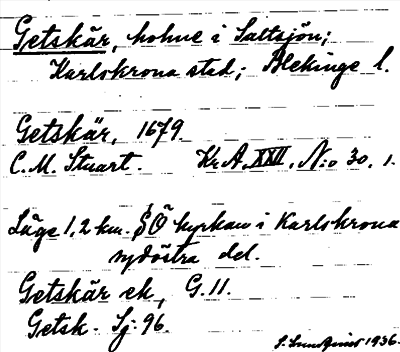 Getskär, holme i Saltsjön;
Karlskrona stad; Blekinge l.
Getskär, 1679.
C. M. Stuart. Kr A. XXII, N:o 30, 1.
Läge 1,2 km. SÖ kyrkan i Karlskrona
sydöstra del.
Getskär ek, G. 11.
Getsk. Sj. 96.
S. 1936.